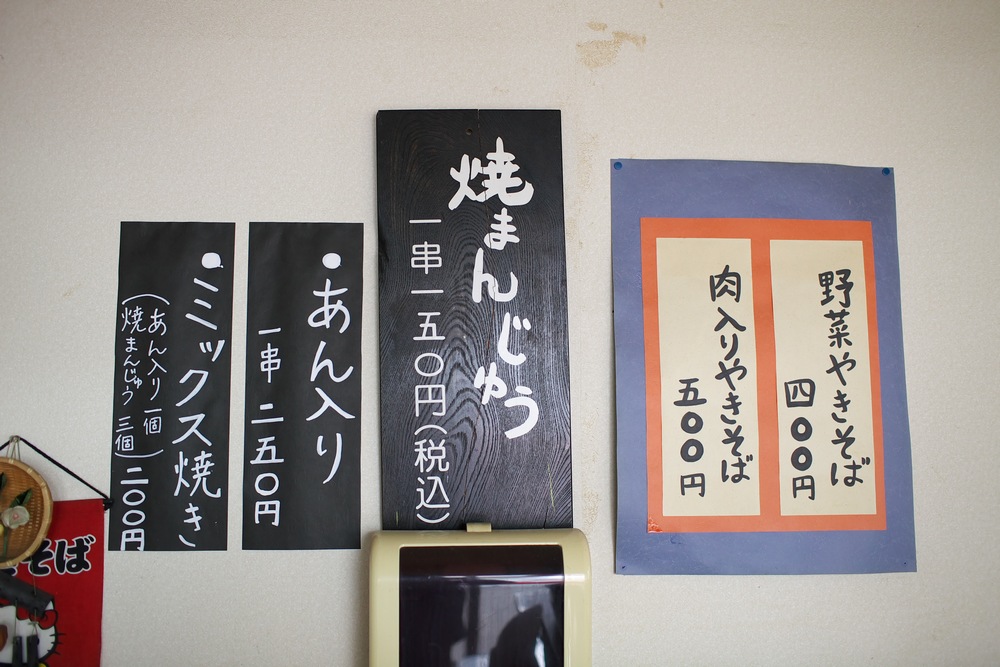 野菜やきそば
四〇〇円
肉入りやきそば
五〇〇円
焼まんじゅう
一串一五〇円(税込)
●あん入り
一串 二五〇円
●ミックス焼き
(あん入り一個
焼まんじゅう 三個)二〇〇円
そば